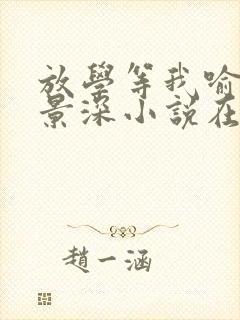 放學等我喻
景深小說在
趙一涵